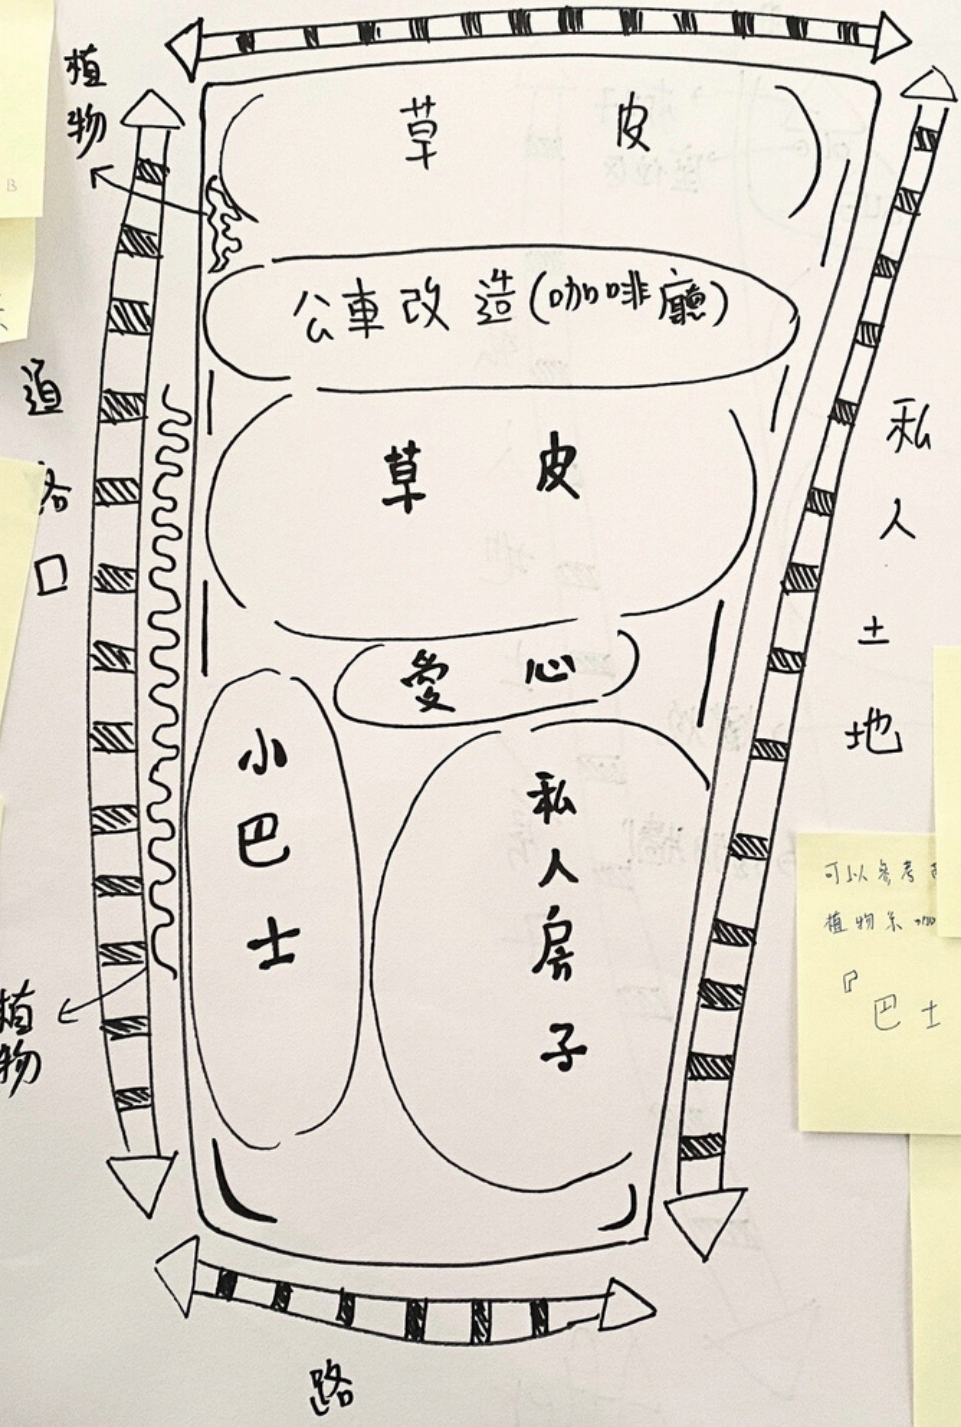 植物
草皮
公車改造(咖啡廳)
道路口
草皮
私人土地
愛心
小巴士
私人房子
植物
路
可以參考
植物系咖
『巴士
B